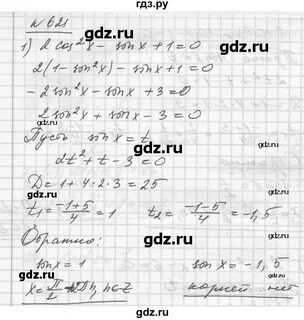 гдз.ру
№ 621
1) 2 cos²x - sin x + 1 = 0
2(1 - sin²x) - sin x + 1 = 0
-2 sin²x - sin x + 3 = 0
2 sin²x + sin x - 3 = 0
Пусть sin x = t
2t² + t - 3 = 0
D = 1 + 4·2·3 = 25
t₁ = (-1+5)/4 = 1 t₂ = (-1-5)/4 = -1,5
Обратно:
sin x = 1 sin x = -1,5
x = π/2 + 2πn, n∈Z корней нет
гдз.ру